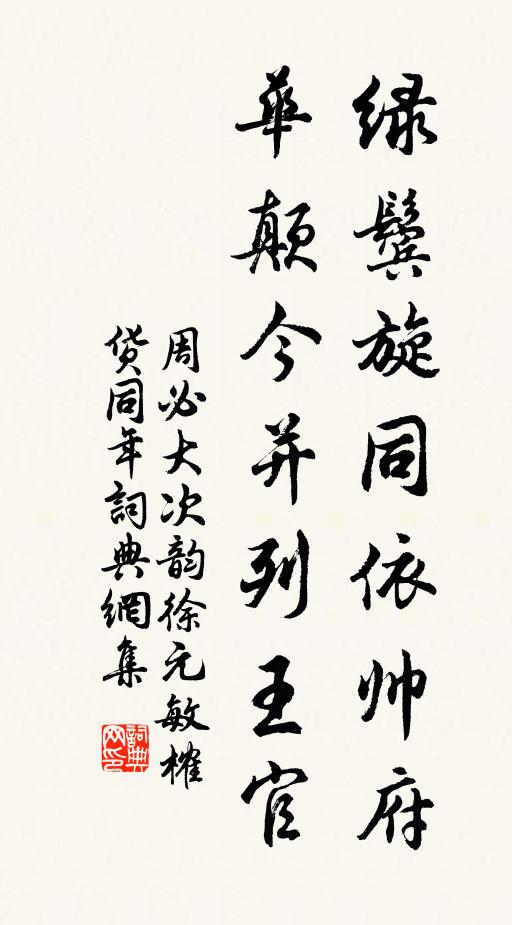 绿鬓旋同依帅府
華颠今并列王官
周必大次韵徐元敏榷
货同年詞典網集
詞典网印